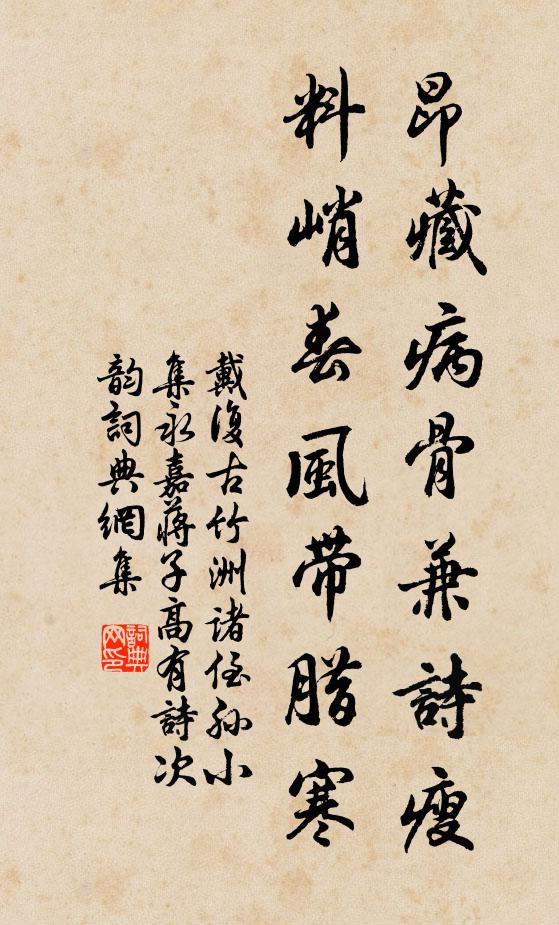 昂藏病骨兼詩瘦
料峭春風帶腊寒
戴復古竹洲諸侄孫小
集永嘉蔣子高有詩次
韵詞典網集
詞典网印